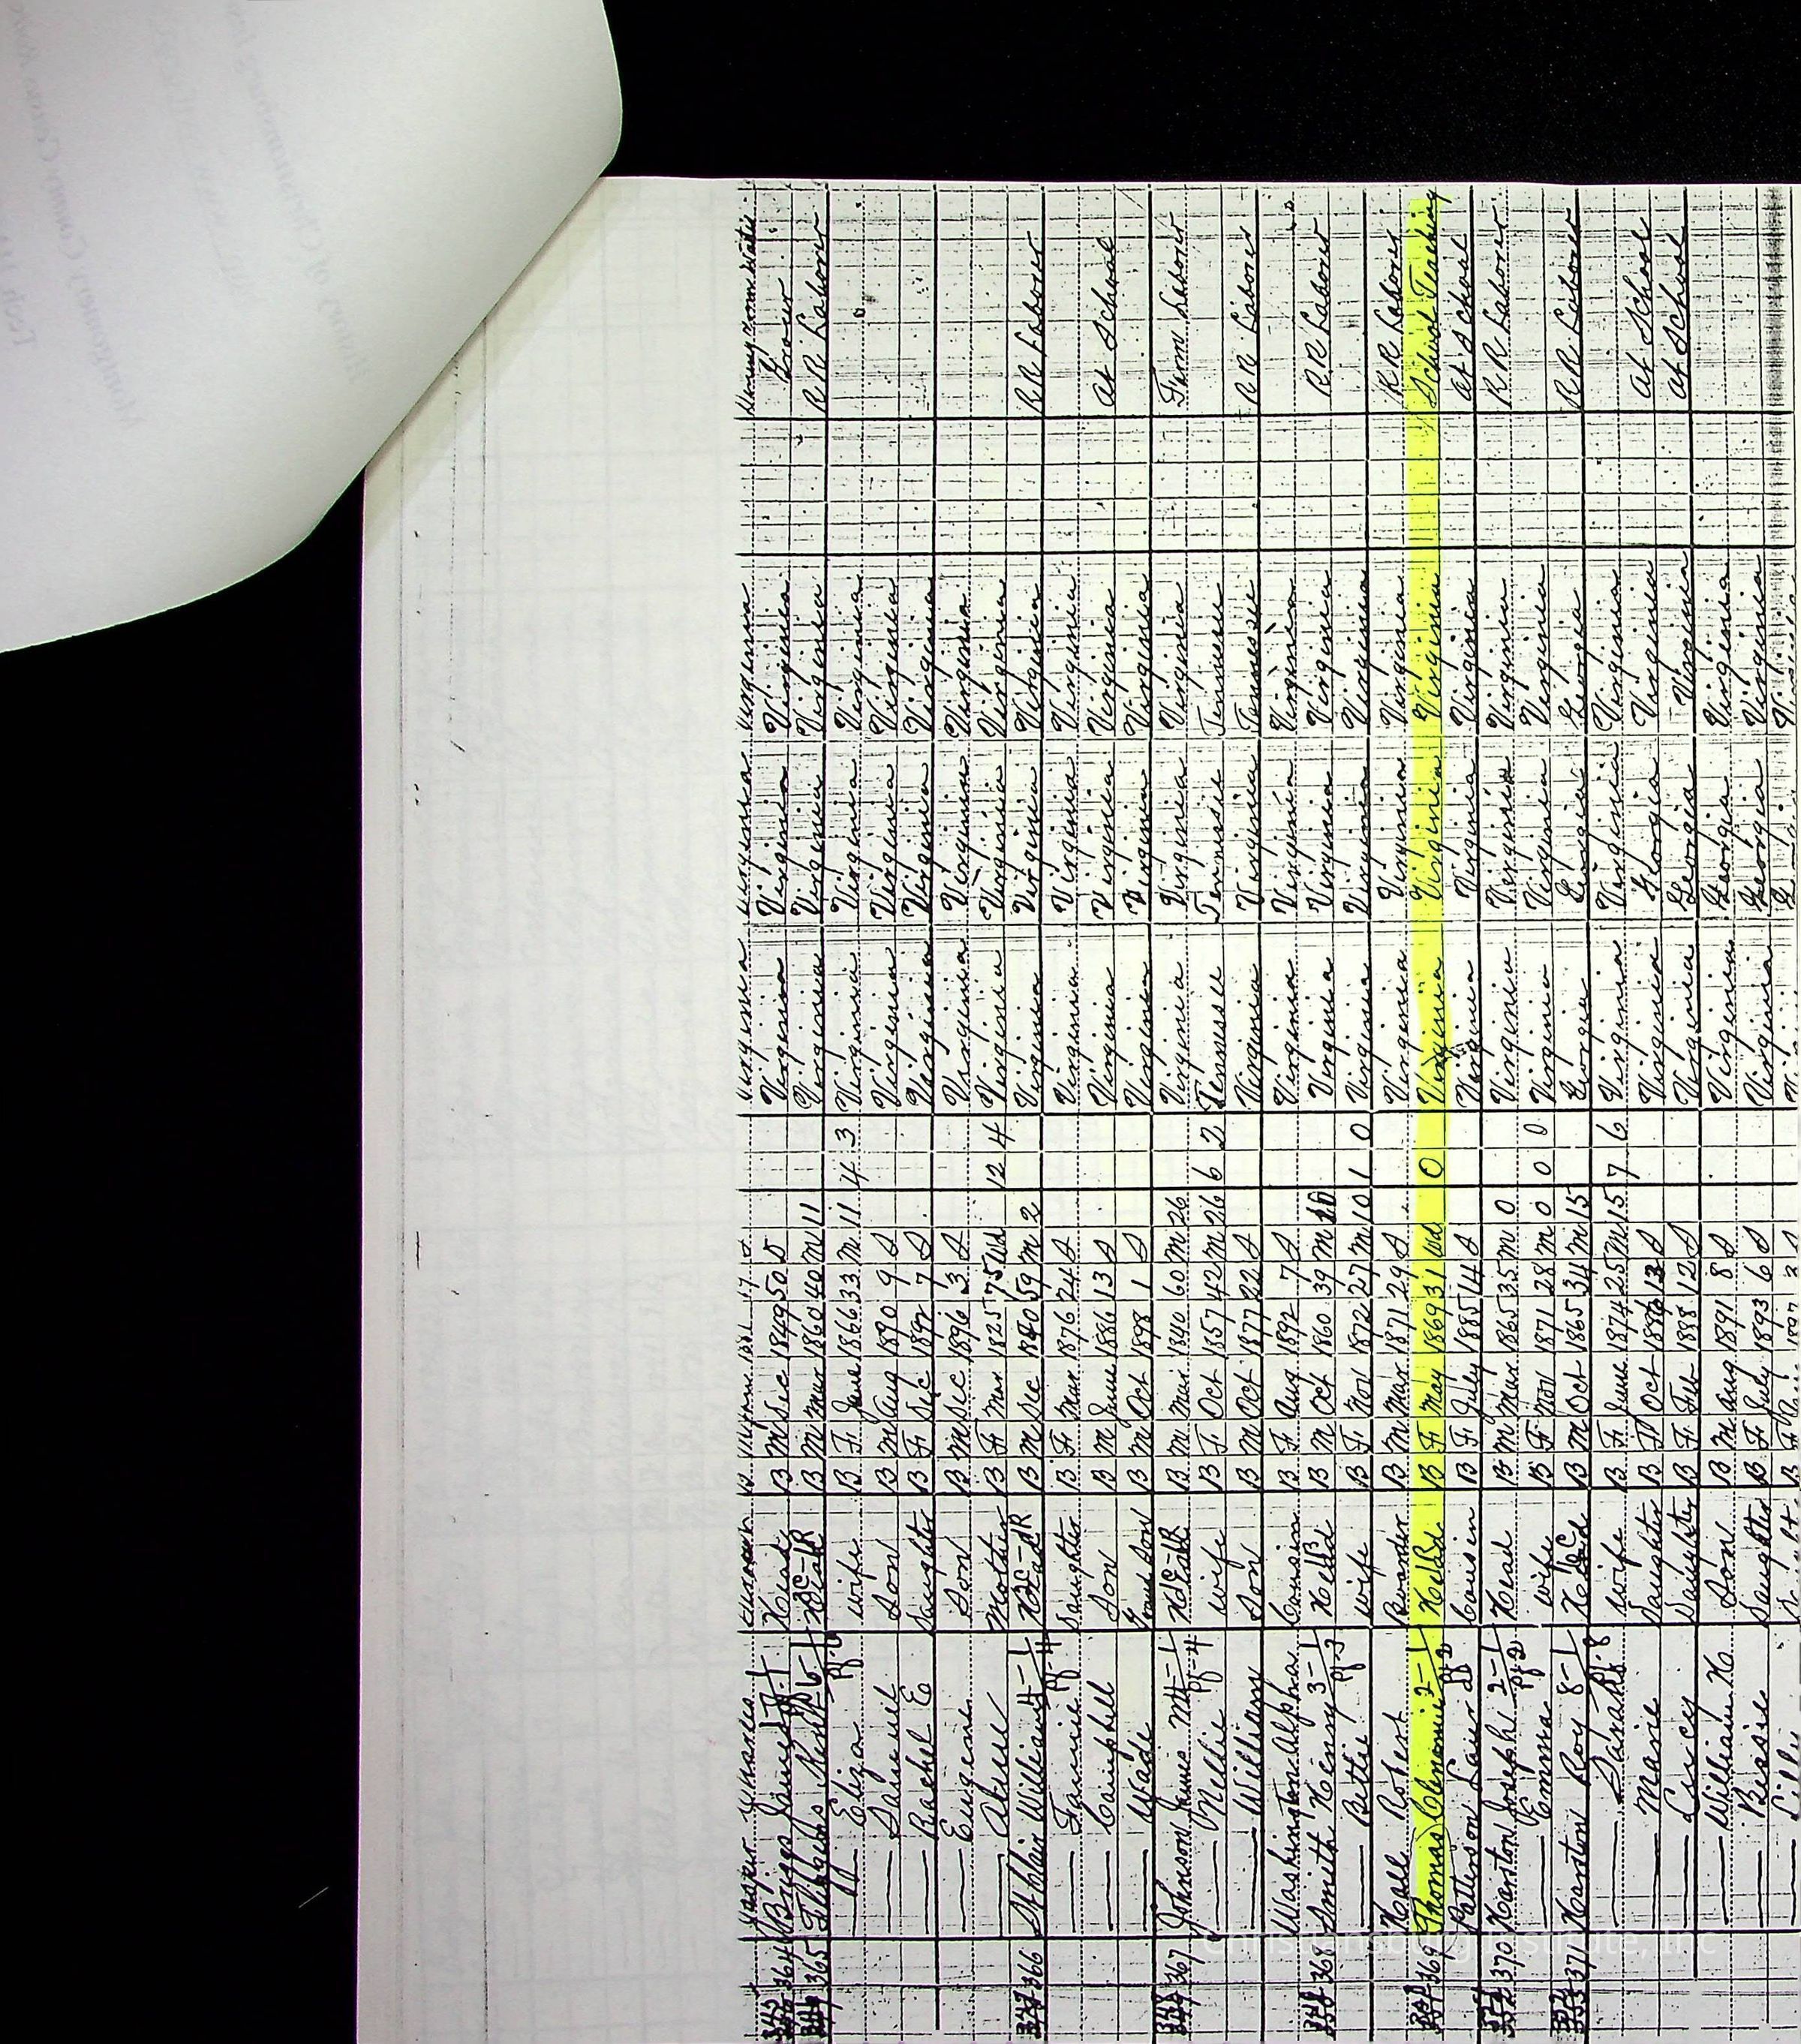 Virginia Virginia Virginia
364 Briggs James Head B M Dec 1849 50 S Virginia Virginia Virginia
365 B M Mar 1860 40 M 11 Virginia Virginia Virginia RR Laborer
— Eliza wife B F June 1866 33 M 11 4 3 Virginia Virginia Virginia
— Samuel Son B M Aug 1890 9 S Virginia Virginia Virginia
— Rachel E Daughter B F Dec 1892 7 S Virginia Virginia Virginia
— Eugene Son B M Dec 1896 3 S Virginia Virginia Virginia
Mother B F Mar 1825 75 Wd 12 4 Virginia Virginia Virginia
366 St Clair William 4-1 B M Dec 1840 59 M 2 Virginia Virginia Virginia RR Laborer
— Fannie Pf-4 Daughter B F Mar 1876 24 S Virginia Virginia Virginia
— Campbell Son B M June 1886 13 S Virginia Virginia Virginia At School
— Wade Grand Son B M Oct 1898 1 S Virginia Virginia Virginia
367 Johnson B M Mar 1840 60 M 26 Virginia Virginia Virginia Farm Laborer
— Millie Pf-4 wife B F Oct 1857 42 M 26 6 2 Tennessee Tennessee Tennessee
— William Son B M Oct 1877 22 S Virginia Virginia Tennessee RR Laborer
Washington Alpha Cousin B F Aug 1892 7 S Virginia Virginia Virginia
368 Smith Henry 3-1 B M Oct 1860 39 M 10 Virginia Virginia Virginia RR Laborer
— Bettie Pf-3 wife B F Nov 1872 27 M 10 1 0 Virginia Virginia Virginia
Hall Robert Boarder B M Mar 1871 29 S Virginia Virginia Virginia RR Laborer
369 Thomas 2-1 B F May 1869 31 Wd 0 Virginia Virginia Virginia School Teaching
Paterson Cousin B F July 1885 14 S Virginia Virginia Virginia At School
370 Hairston Joseph 2-1 Head B M Mar 1865 35 M 0 Virginia Virginia Virginia RR Laborer
— Emma Pf-2 wife B F Nov 1871 28 M 0 0 0 Virginia Virginia Virginia
371 Hairston Roy 8-1 B M Oct 1865 34 M 15 Georgia Georgia Georgia RR Laborer
— Sarah Pf-8 wife B F June 1874 25 M 15 7 6 Virginia Virginia Virginia
— Marie Daughter B F Oct 1886 13 S Virginia Georgia Virginia At School
— Lucy Daughter B F Feb 1888 12 S Virginia Georgia Virginia At School
— William H. Son B M Aug 1891 8 S Virginia Georgia Virginia
— Bessie Daughter B F July 1893 6 S Virginia Georgia Virginia
— Lilly B F
Christiansburg Institute, Inc